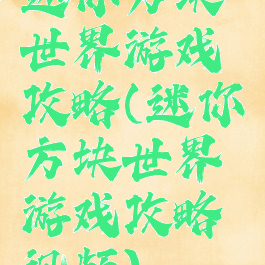 迷你方块
世界游戏
攻略(迷你
方块世界
游戏攻略
视频)